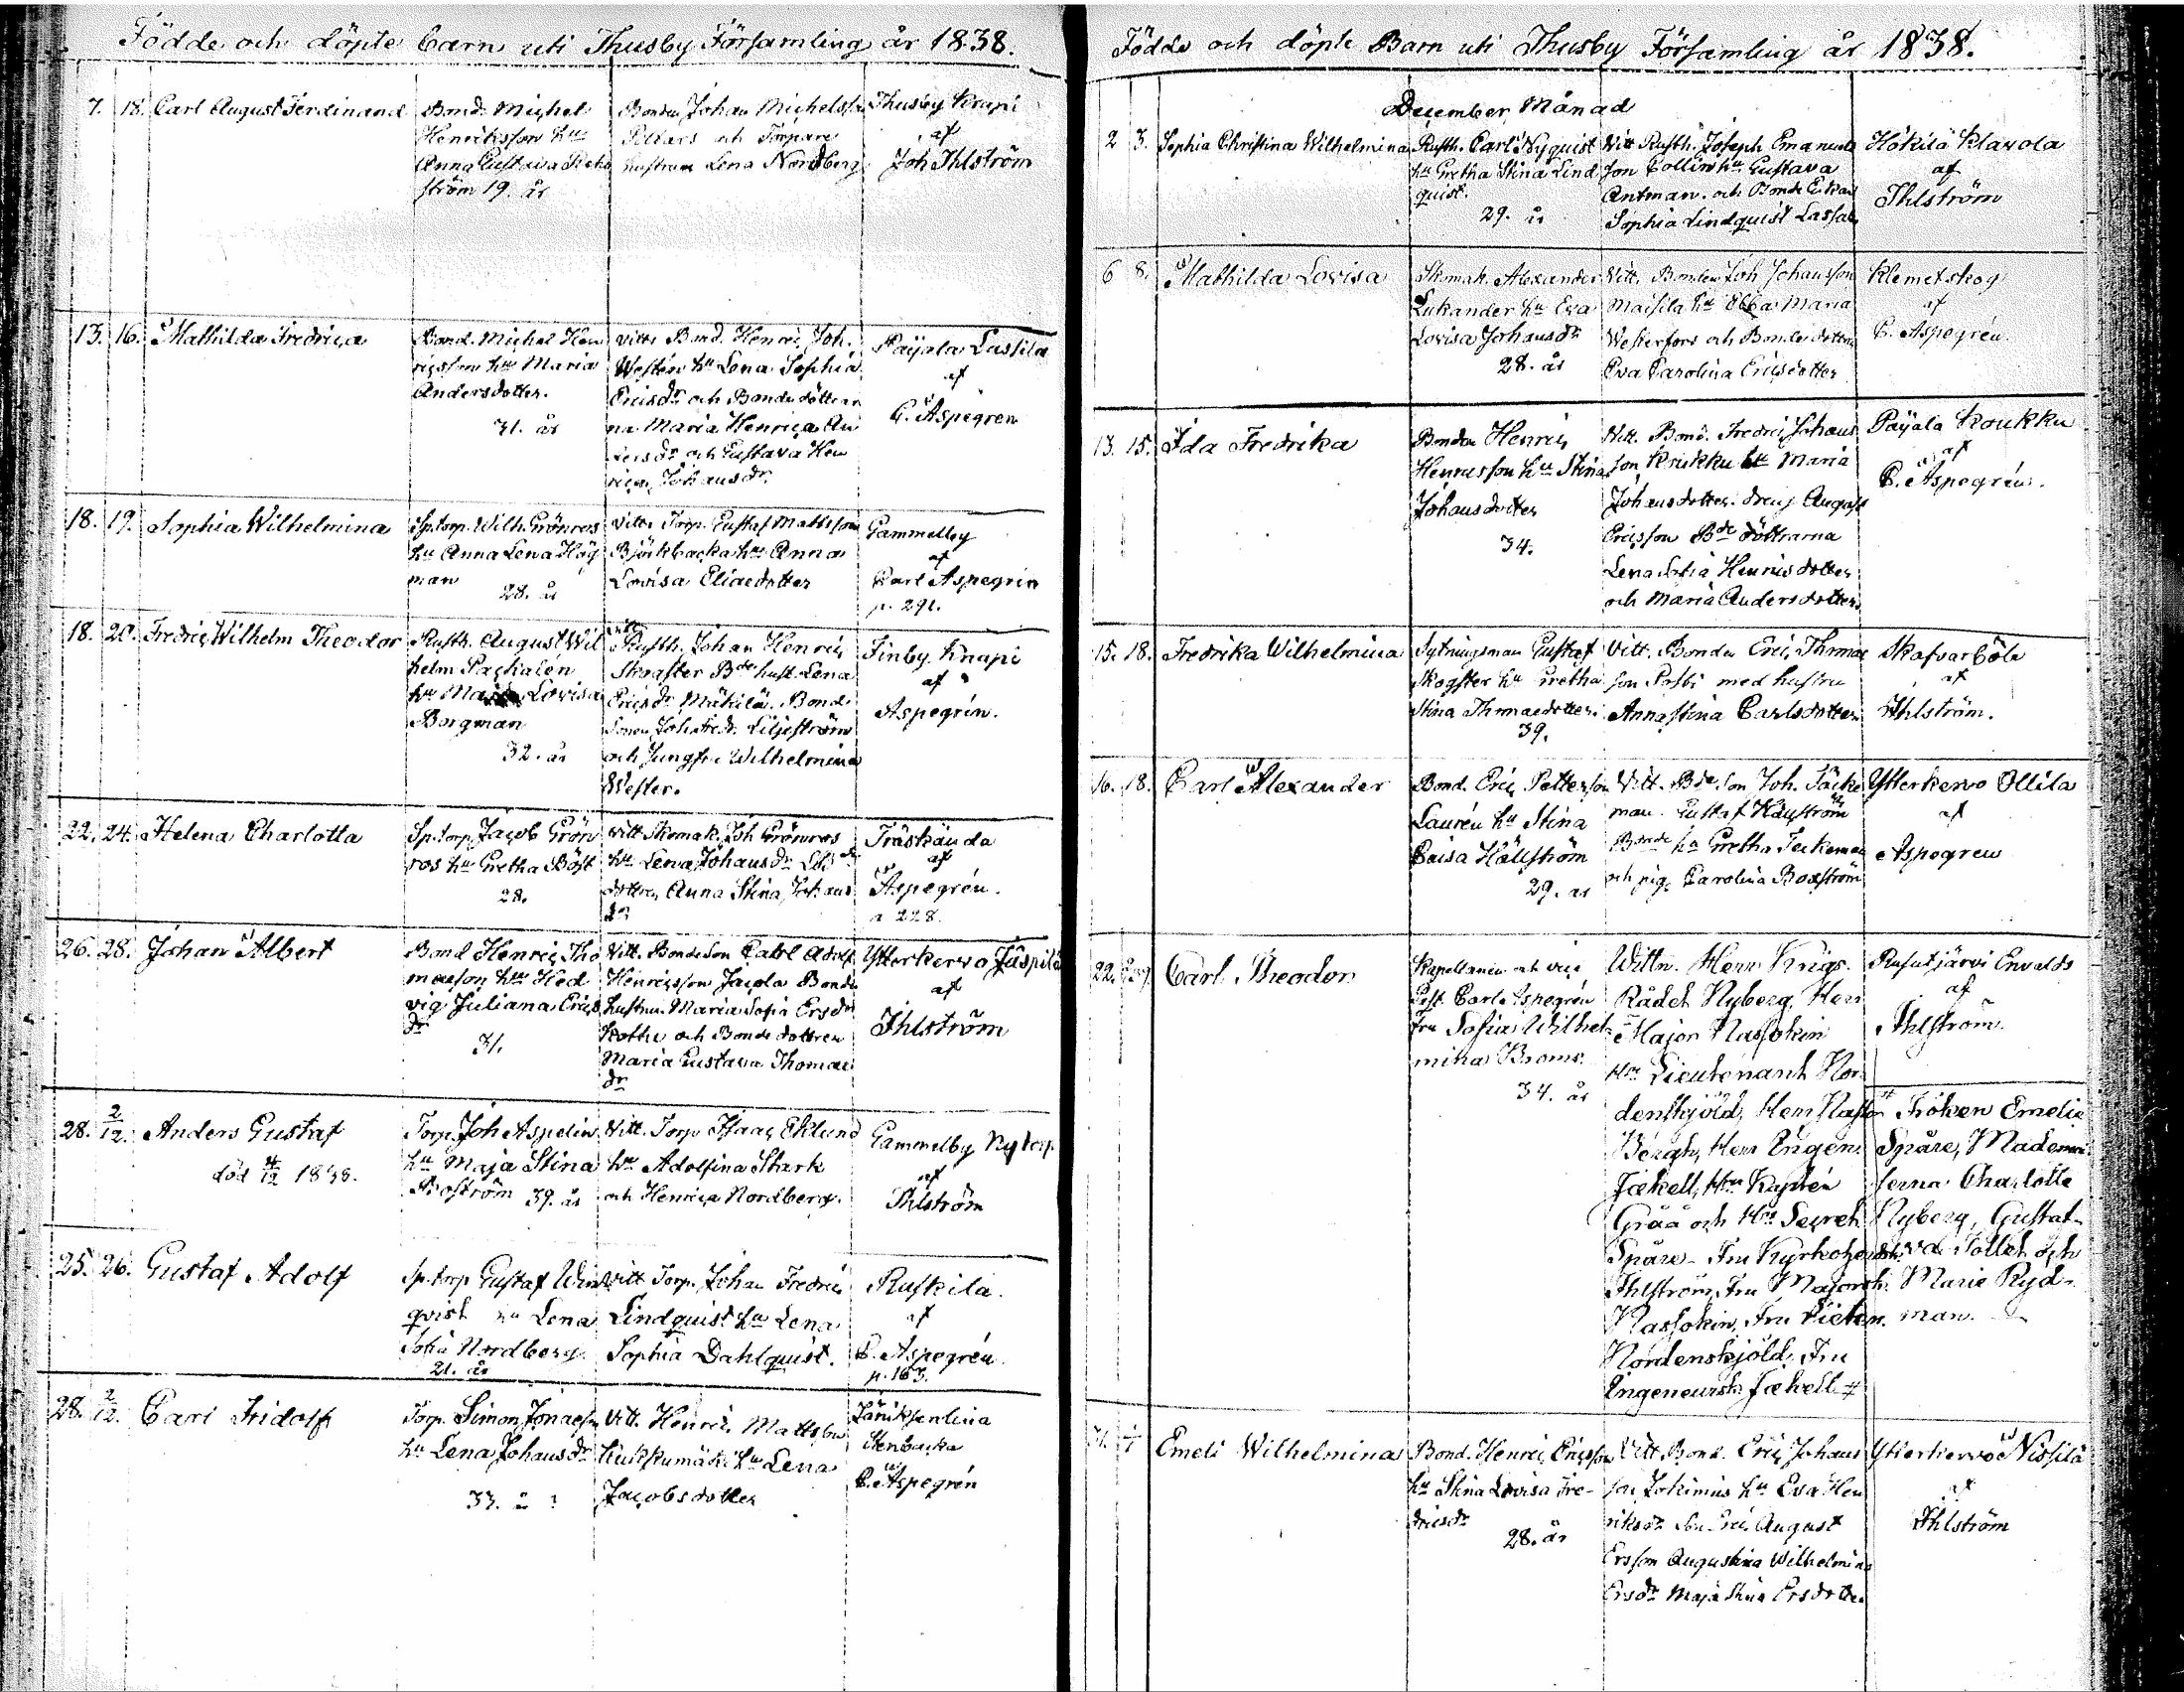 Födde och döpte Barn uti Thusby Församling år 1838.
7. 18. Carl August Ferdinand
Bond. Michel
Henriksson hu
Anna Gustava
ström 19. år
Bonden Johan Michelsson
Pellars och Torpare
hustrun Lena Nordberg
Thusby Krapi
af
Joh Ihlström
13. 16. Mathilda Fredrica
Bond. Michel Hen
ricsson hu Maria
Andersdotter.
31. år
Vitt. Bond. Henric Joh.
Westén hu Lena Sophia
Ericsdr och Bondedöttrar
na Maria Henrica An
dersdr och Gustava Hen
rica Johansdr
Payala Lassila
af
C. Aspegren
18. 19. Sophia Wilhelmina
Sp.torp. Wilh. Grönros
hu Anna Lena Hög
man
28. år
Vitt. Torp. Gustaf Mattsson
Björkbacka hu Anna
Lovisa Eliaedotter
Gammelby
af
Carl Aspegrén
p. 291.
18. 20. Fredric Wilhelm Theodor
Rusth. August Wil
helm Packalén
hu Lovisa
Borgman
32. år
Vitt.
Rusth. Johan Henric
Skogster Bde hust. Lena
Ericsdr Mäkilä. Bond
sonen Joh Fredr. Liljeström
och Jungfr. Wilhelmina
Wester.
Finby Knapi
af
Aspegrén.
22. 24. Helena Charlotta
Sp.torp Jacob Grön
ros hu Gretha Böst
28.
Vitt Skomak. Joh Grönroos
hu Lena Johansdr
dottren Anna Stina Johans
dr
Träskända
af
Aspegrén.
p 228.
26. 28. Johan Albert
Bond Henric Tho
masson hu Hed
vig Juliana Erics
dr
31.
Vitt. Bondeson Carl Adolf
Henricsson Jacola Bonde
hustrun Maria Sofia Ersdr
Skothe och Bonde dottren
Maria Gustava Thomae
dr
Ytterkervo Juspila
af
Ihlström
28. 2/12. Anders Gustaf
död 4/12 1838.
Torp. Joh Aspelin
hu Maja Stina
Boström 39. år
Vitt. Torp Isaac Eklund
hu Adolfina Stark
och Henrica Nordberg.
Gammelby Nytorp.
af
Ihlström
25. 26. Gustaf Adolf
Sp.torp Gustaf Win
qvist hu Lena
Sofia Nordberg.
21. år
Vitt Torp. Johan Fredric
Lindquist hu Lena
Sophia Dahlquist.
Ruskila.
af
C. Aspegrén
p. 163.
28. 2/12. Carl Fridolf
Torp. Simon Jonaesson
hu Lena Johansdr
33. å
Vitt. Henric Mattsson
Kukkumäki hu Lena
Jacobsdotter
Stenbacka
C. Aspegrén
Födde och döpte Barn uti Thusby Församling år 1838.
December Månad
2 3. Sophia Christina Wilhelmina
Rusth. Carl Nyquist
hu Gretha Stina Lind
quist.
29. år
Vitt Rusth. Joseph Emanuels
son Collin hu Gustava
Antman. och Bonde
Sophia Lindquist Lassala
Hökilä Klavola
af
Ihlström
6 8. Mathilda Lovisa
Skomak. Alexander
Lukander hu Eva
Lovisa Johansdr
28. år
Vitt. Bonden Joh Johansson
Maisila hu Ebba Maria
Westerfors och Bondedottren
Eva Carolina Ericsdotter
Klemetskog
af
C. Aspegrén.
13. 15. Ida Fredrika
Bonden Henric
Henricsson hu Stina
Johansdotter
34.
Vitt. Bond. Fredric Johans
son Koukku hu Maria
Johansdotter. dreng August
Ericsson Bde döttrarna
Lena Sofia Henricsdotter
och Maria Andersdotter.
Payala Koukku
af
C. Aspegrén.
15. 18. Fredrika Wilhelmina
Sytningsman Gustaf
Skogster hu Gretha
Stina Thomaedotter.
39.
Vitt. Bonden Eric Thomae
son Posti med hustru
Anna Stina Carlsdotter
Skafvarböle
af
Ihlström.
16. 18. Carl Alexander
Bond. Eric Petterson
Laurén hu Stina
Caisa Hällström
29. år
Vitt. Bde son Joh. Täcke
man. Gustaf Hägström
Bonde hu Gretha Teckeman
och pig. Carolina Boxström
Ytterkervo Ollila
af
Aspegren
22. Carl Theodor
Kapellanen och vice
Past. Carl Aspegrén
Fru Sofia Wilhel
mina Broms.
34. år
Wittn. Herr Krigs-
Rådet Nyberg, Herr
Major Nassokin
Hrr Lieutenant Nor-
denskjöld, Herr Pastor
Bergh, Herr Ingen.
Jækell, Hrr Kaptén
Gråå och Hrr Secret.
Spåre - Fru Kyrkoherdsk.
Ihlström, Fru Majorsk.
Nassokin, Fru Lieten.
Nordenskjöld, Fru
Ingeneursk. Jækell #
Rusutjärvi Envalds
af
Ihlström.
# Fröken Emelie
Spåre, Mademoi
serna Charlotte
Nyberg, Gustaf-
va Tollet och
Marie Ryd-
man.
31. 1/1 Emeli Wilhelmina
Bond. Henric Ericsson
hu Stina Lovisa Fre-
dricsdr
28. år
Vitt. Bond. Eric Johans
son Jokimies hu Eva Hen
riksdr Son Eric August
Ersson Augustina Wilhelmina
Ersdr Maja Stina Ersdotter
Ytterkervo Nissilä
af
Ihlström